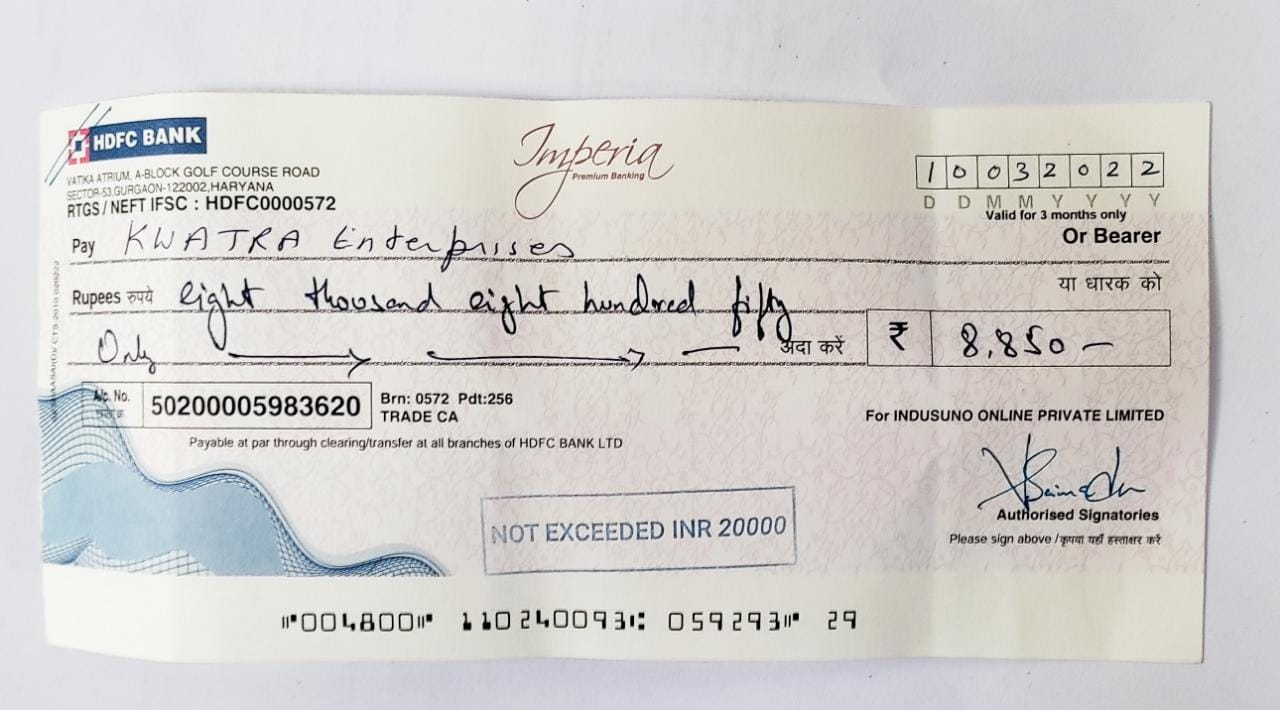 HDFC BANK
Imperia
Premium Banking
VATIKA ATRIUM, A-BLOCK GOLF COURSE ROAD
SECTOR-53,GURGAON-122002,HARYANA
RTGS / NEFT IFSC : HDFC0000572
1 0 0 3 2 0 2 2
D D M M Y Y Y Y
Valid for 3 months only
Pay KWATRA Enterprises
Or Bearer
या धारक को
Rupees रुपये eight thousand eight hundred fifty
Only अदा करें ₹ 8,850 —
A/c. No. 50200005983620
Brn: 0572 Pdt:256
TRADE CA
For INDUSUNO ONLINE PRIVATE LIMITED
Payable at par through clearing/transfer at all branches of HDFC BANK LTD
NOT EXCEEDED INR 20000
Authorised Signatories
Please sign above /कृपया यहाँ हस्ताक्षर करें
⑈004800⑈ 110240093⑆ 059293⑈ 29